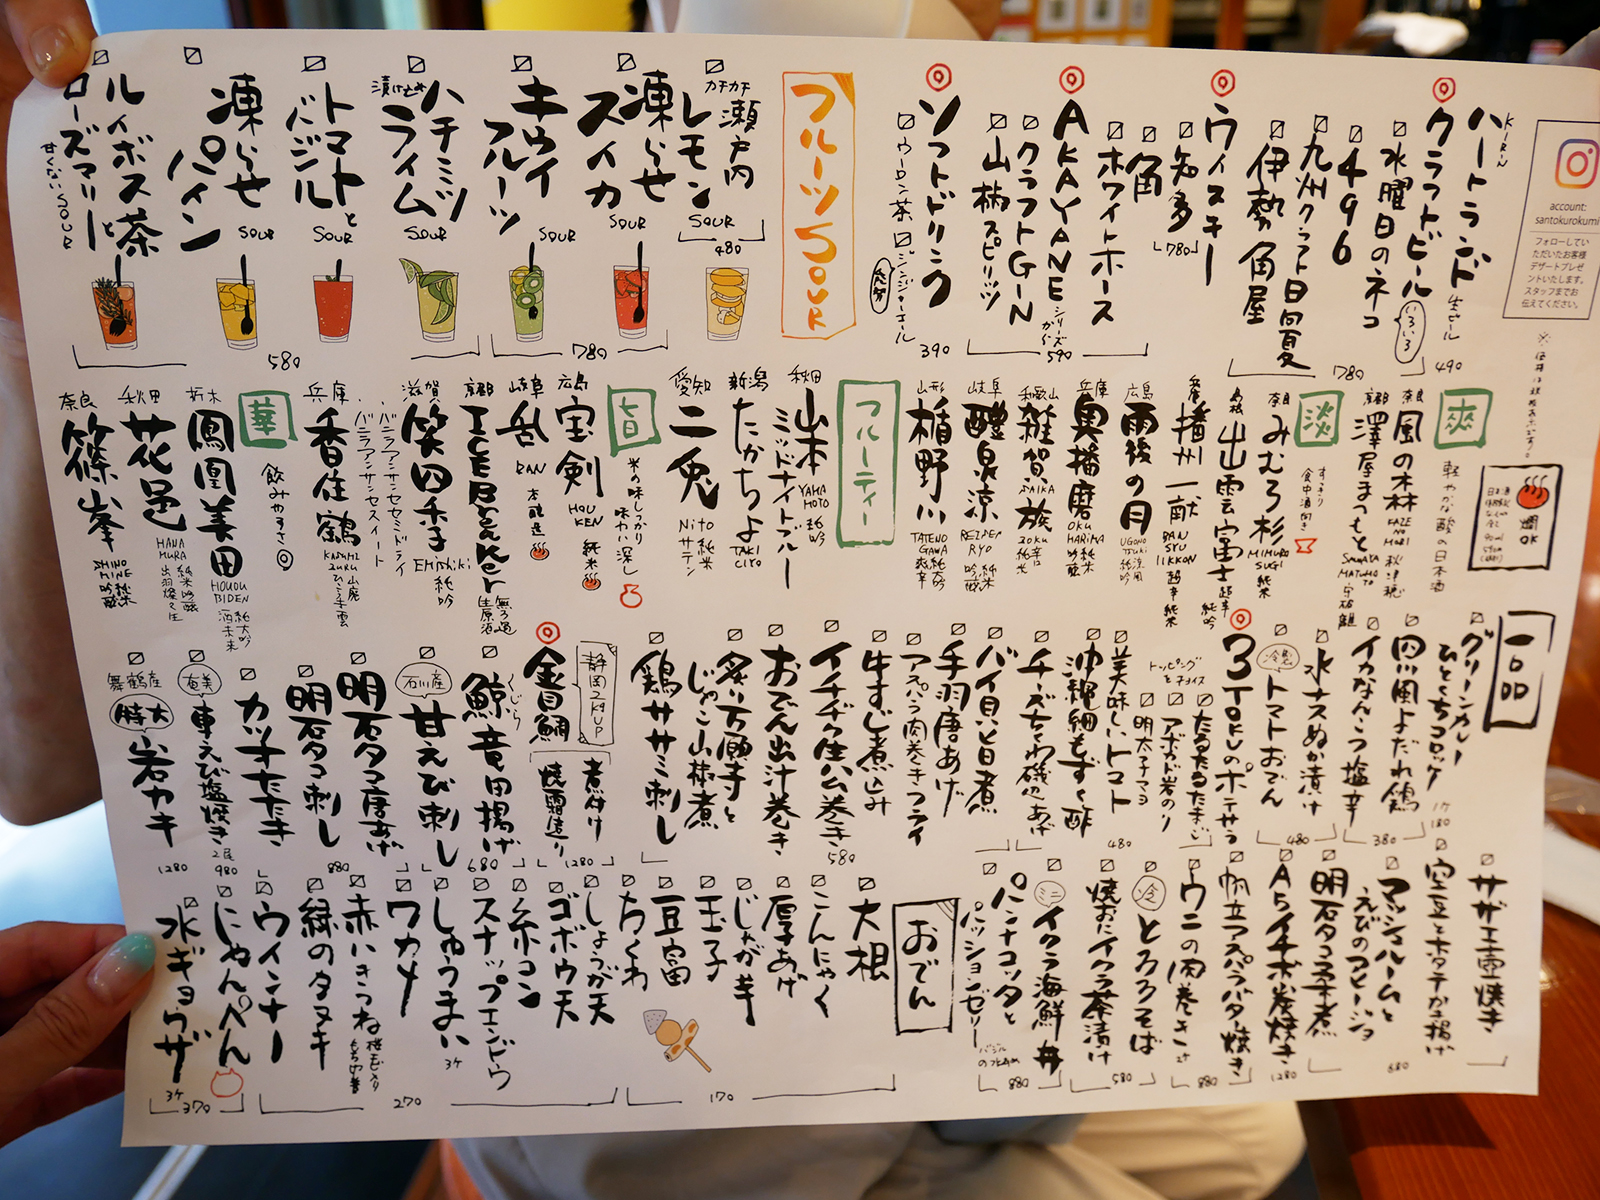 account:
santokurokumi
フォローしてい
ただいたお客様
デザートプレゼ
ントいたします。
スタッフまでお
伝えてください。
KIRIN
ハートランド
生ビール
490
クラフトビール
いろいろ
水曜日のネコ
496
九州クラフト日向夏
伊勢角屋
780
ウィスキー
知多
780
角
ホワイトホース
AKAYANE
シリーズ
から
クラフトGIN
山椒スピリッツ
590
ソフトドリンク
ウーロン茶
ジンジャーエール
390
フルーツSOUR
カチカチ
瀬戸内
レモン
SOUR
480
凍らせ
スイカ
SOUR
キウイ
フルーツ
SOUR
780
ハチミツ
漬け込み
ライム
SOUR
トマトと
バジル
SOUR
凍らせ
パイン
SOUR
ルイボス茶と
ローズマリー
甘くないSOUR
580
燗OK
爽
軽やかな酸の日本酒
奈良
風の森
KAZE NO MORI
秋津穂
京都
澤屋まつもと
SAWAYA MATUMOTO
守破離
淡
すっきり
食中酒向き
奈良
みむろ杉
MIMURO SUGI
純米
島根
出雲富士
超辛
純吟
兵庫
播州一献
BAN SYU IKKON
超辛
純米
広島
雨後の月
UGONO TSUKI
涼風
純吟
兵庫
奥播磨
OKU HARIMA
純米
吟醸
和歌山
雑賀孫
SAIKA
岐阜
醴泉涼
REIZEN RYO
純米
吟醸
山形
楯野川
TATENO GAWA
純大吟
爽辛
フルーティー
秋田
山本
ミッドナイトブルー
YAMA MOTO
純吟
新潟
たかちよ
TAKA CIYO
愛知
二兎
Nito
純米
サテン
旨
米の味しっかり
味わい深し
広島
宝剣
HOU KEN
純米
岐阜
乱
RAN
京都
ICEBreaker
無ろ過
生原酒
滋賀
笑四季
EMishiki
純吟
バニラアンサンセセミドライ
バニラアンサンセスイート
兵庫
香住鶴
KASUMI ZURU
山廃
華
飲みやすさ◎
栃木
鳳凰美田
HOUOU BIDEN
純大吟
酒未来
秋田
花邑
HANA MURA
純米吟醸
出羽燦々生
奈良
篠峯
SHINO MINE
純米
吟醸
一品
グリーンカレー
ひとくちコロッケ
1ケ
180
四川風よだれ鶏
イカなんこつ塩辛
380
水ナスぬか漬け
冷製
トマトおでん
480
3TOKUのポテサラ
トッピング
をチョイス
たるたるたまご
アボカド岩のり
明太子マヨ
美味しいトマト
沖縄細もずく酢
チーズちくわ磯辺あげ
480
バイ貝の旨煮
手羽唐あげ
アスパラ肉巻きフライ
牛すじ煮込み
イチヂク生ハム巻き
おでん出汁巻き
炙り万願寺と
じゃこ山椒煮
鶏ササミ刺し
580
静岡2kgUP
金目鯛
煮付け
焼霜造り
1280
くじら
鯨竜田揚げ
石川産
甘えび刺し
680
明石タコ唐あげ
明石タコ刺し
880
カツオたたき
奄美
車えび塩焼き
2尾
980
舞鶴産
特大
岩カキ
1280
サザエ壷焼き
空豆とホタテかき揚げ
マッシュルームと
えびのアヒージョ
明石タコ柔煮
680
A5イチボ炭焼き
1280
帆立アスパラバター焼き
ウニの肉巻き
880
冷
とろろそば
焼おにイクラ茶漬け
580
ミニ
イクラ海鮮丼
880
パンナコッタと
パッションゼリー
おでん
大根
こんにゃく
厚あげ
じゃが芋
玉子
豆富
ちくわ
170
しょうが天
ゴボウ天
糸コン
スナップエンドウ
しゅうまい
3ケ
ワカメ
赤いきつね
緑のタヌキ
ウインナー
270
にゃんぺん
水ギョウザ
3ケ
370